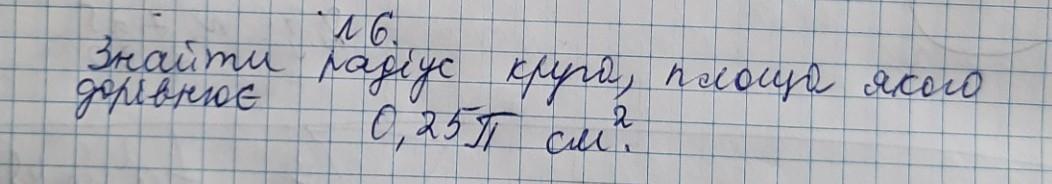 №6.
Знайти радіус круга, площа якого
дорівнює
0,25π см².